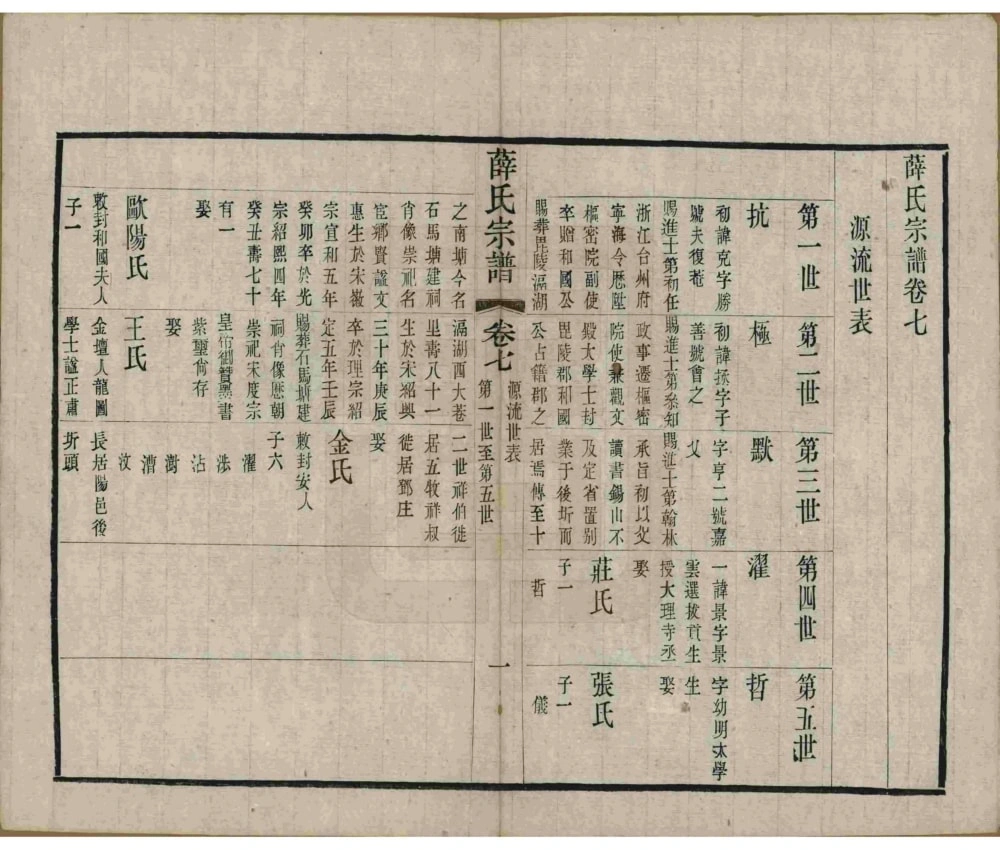 薛氏宗譜卷七
源流世表
第一世
抗
初諱克字勝
號夫復菴
賜進士第初任
浙江台州府
寧海令歷陞
樞密院副使
卒贈和國公
賜葬毘陵滆湖
第二世
極
初諱拯字子
善號會之
賜進士第叅知
政事遷樞密
院使兼觀文
殿大學士封
毘陵郡和國
公占籍郡之
第三世
默
字亨二號嘉
父
賜進士第翰林
承旨初以父
讀書錫山不
及定省置別
業于後圻而
居焉傳至十
第四世
濯
一諱景字景
雲選拔貢生
授大理寺丞
娶
莊氏
子一
哲
第五世
哲
字幼明太學
生
娶
張氏
子一
儀
薛氏宗譜
卷七
源流世表
第一世至第五世
一
之南塘今名
石馬塘建祠
肖像崇祀名
宦鄉賢諡文
惠生於宋徽
宗宣和五年
癸卯卒於光
宗紹熙四年
癸丑壽七十
有一
娶
歐陽氏
敕封和國夫人
子一
滆湖西大巷
里壽八十一
生於宋紹興
三十年庚辰
卒於理宗紹
定五年壬辰
賜葬石馬塘建
祠肖像歷朝
崇祀宋度宗
皇帝御贊墨書
紫璽尚存
娶
王氏
金壇人龍圖
學士諡正肅
二世祥伯徙
居五牧祥叔
徙居鄧庄
娶
金氏
敕封安人
子六
濯
洙
沾
澍
漕
汶
長居陽邑後
圻頭